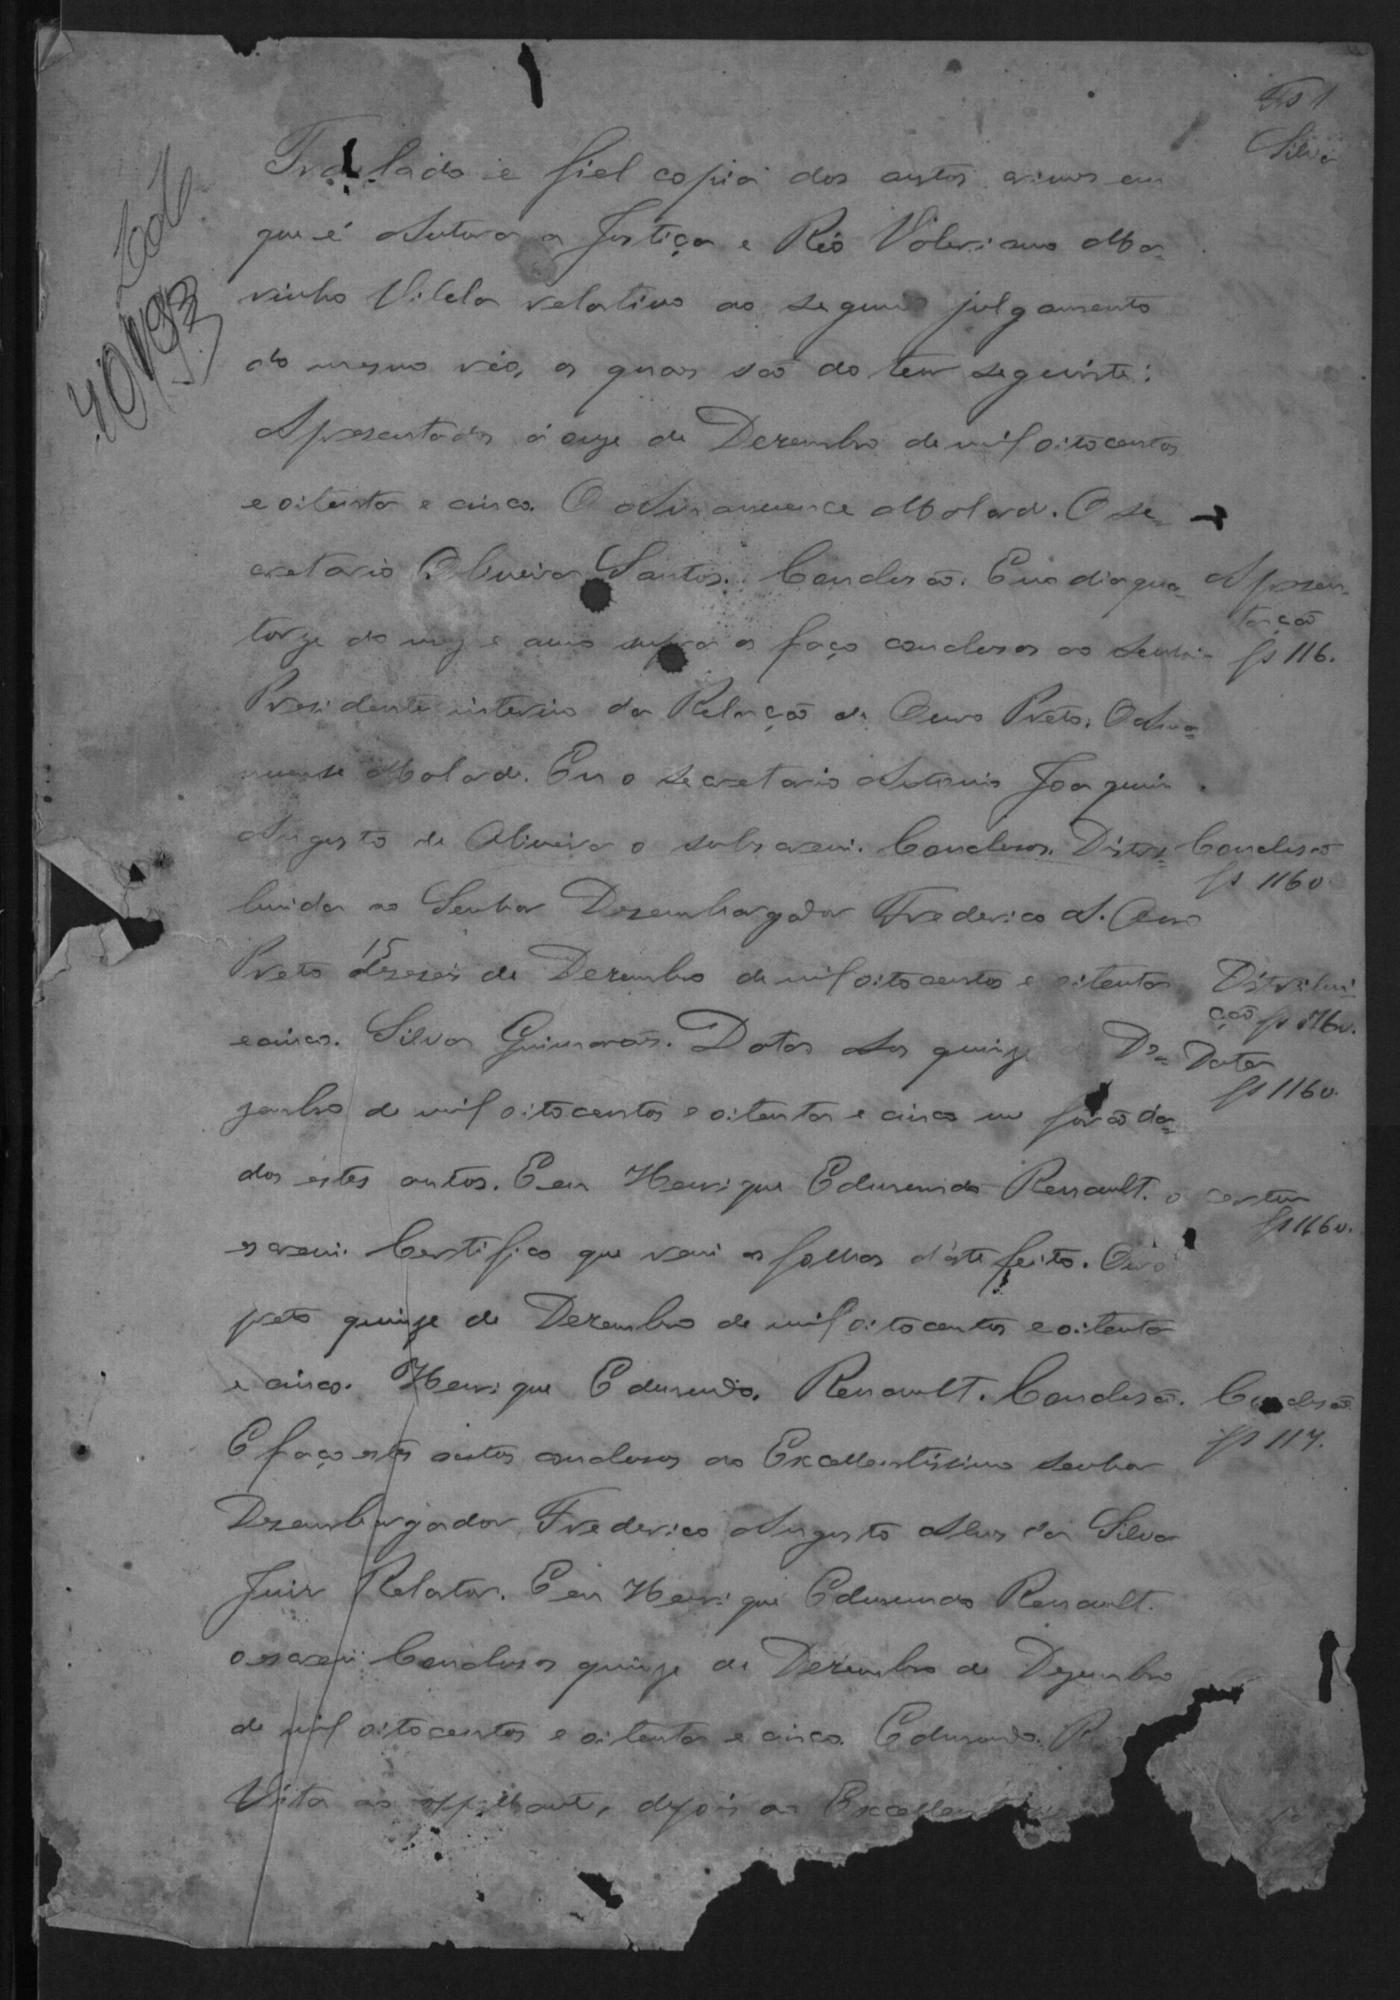 Fls 1
Silva
40193
Traslado e fiel copia dos autos crimes em
que é Autora a Justiça e Réo Valeriano Ma-
rinho Vilela relativo ao segundo julgamento
do mesmo réo, os quaes são do teor seguinte:
Apresentados á onze de Dezembro de mil oitocentos
e oitenta e cinco. O Amanuence Malard. O se-
cretario Oliveira Santos. Conclusão. E no dia qua-
torze do mez e anno supra os faço conclusos ao Senhor
Presidente interino da Relação de Ouro Preto. O Ama-
nuense Malard. Eu o secretario Antonio Joaquim
Augusto de Oliveira o subscrevi. Conclusos. Distri-
buida ao Senhor Desembargador Frederico A. Ouro
Preto 15 de Dezembro de mil oitocentos e oitenta
e cinco. Silva Guimarães. Data Aos quinze de De-
zembro de mil oitocentos e oitenta e cinco me forão da-
dos estes autos. E eu Henrique Edmundo Renault. o
escrevi. Certifico que revi as folhas d'este feito. Ouro
preto quinze de Dezembro de mil oitocentos e oitenta
e cinco. Henrique Edmundo. Renault. Conclusão.
E faço estes autos conclusos ao Excellentissimo Senhor
Desembargador Frederico Augusto Alves da Silva
Juiz Relator. E eu Henrique Edmundo Renault.
o escrevi Conclusos quinze de Dezembro de Dezembro
de mil oitocentos e oitenta e cinco. Edmundo. R
Vista ao appellante, depois ao
Apresen-
tação
fs 116.
Conclusão
fs 116v
Distribui-
ção fs 116v.
Data
fs 116v.
fs 116v.
Conclusão
fs 117.